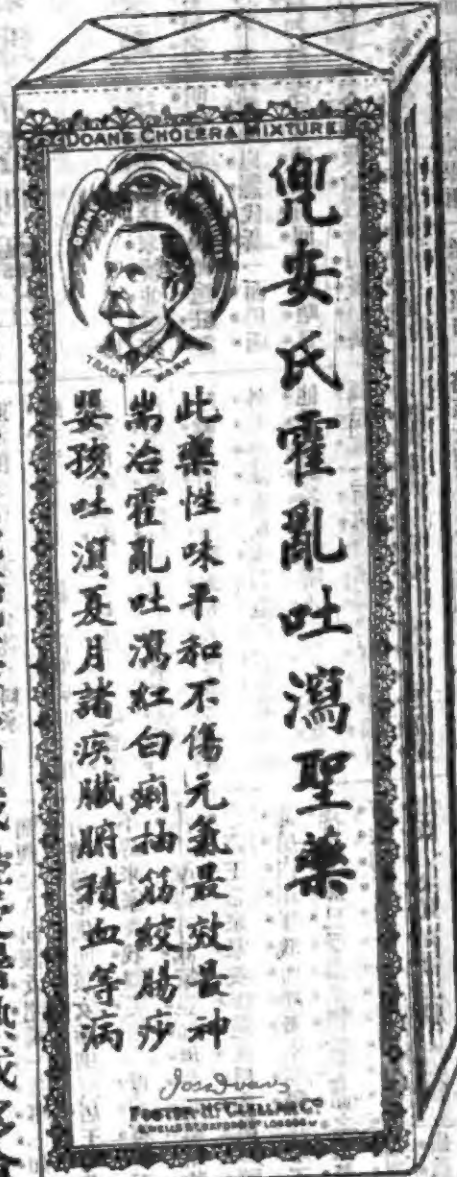 DOANS CHOLERA MIXTURE
DOANS
TRADE MARK
兜安氏霍亂吐瀉聖藥
此藥性味平和不傷元氣最效最神
耑治霍亂吐瀉紅白痢抽筋絞腸痧
嬰孩吐瀉夏月諸疾臟腑積血等病
FOSTER-McCLELLAN Co